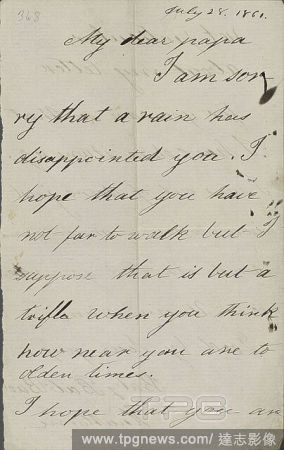 368
July 28. 1861.
My dear papa
I am son
ry that a rain has
disappointed you. I
hope that you have
not far to walk but I
suppose that is but a
trifle when you think
how near you are to
olden times.
I hope that you are
TPG
www.tpgnews.com/達志影像